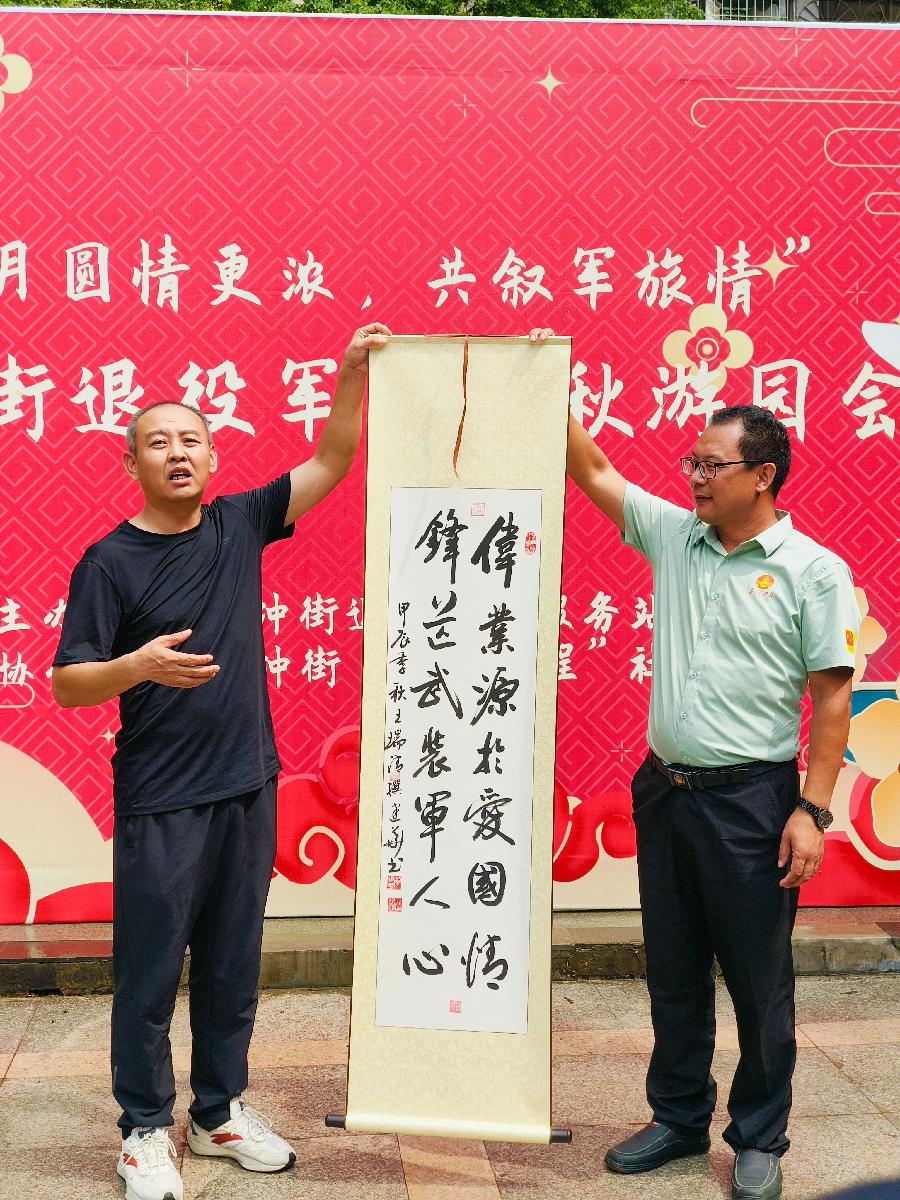 月圆情更浓，共叙军旅情”
街退役军 秋游园会
主办 冲街退 服务站
协 冲街 程”社
偉業源於愛國情
鋒芒武裝軍人心
甲辰季秋王瑞清撰 書